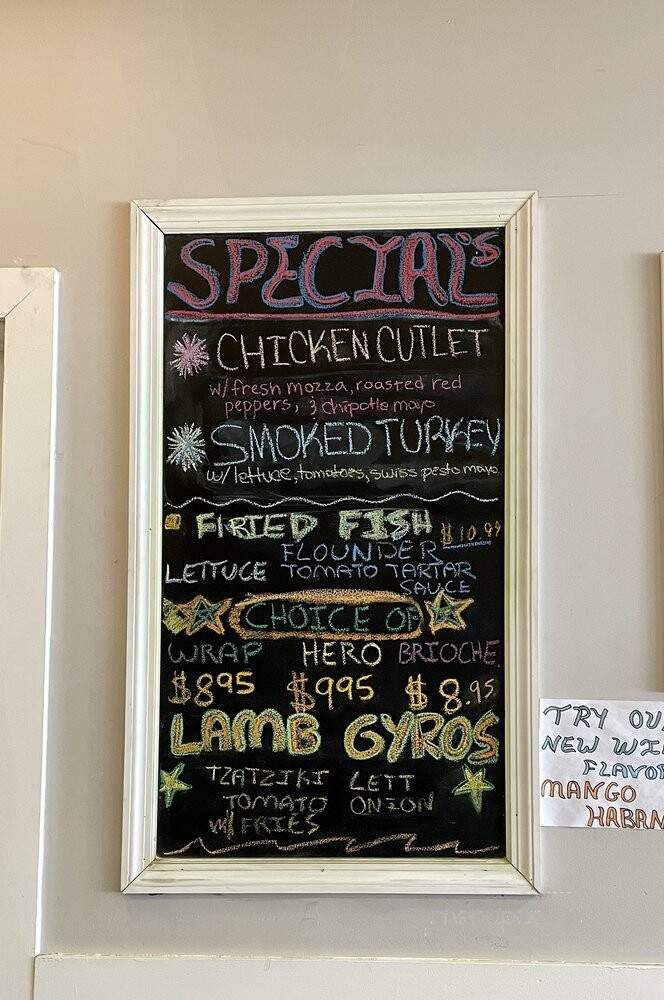 SPECIAL'S
CHICKEN CUTLET
w/fresh mozza, roasted red
peppers, & chipotle mayo
SMOKED TURKEY
w/ lettuce, tomatoes, swiss pesto mayo
FIRIED FISH $10.99
FLOUNDER
LETTUCE TOMATO TARTAR
SAUCE
CHOICE OF
WRAP HERO BRIOCHE
$8.95 $9.95 $8.95
LAMB GYROS
TZATZIKI LETT
TOMATO ONION
W/ FRIES
TRY OU
NEW WI
FLAVO
MANGO
HABAN